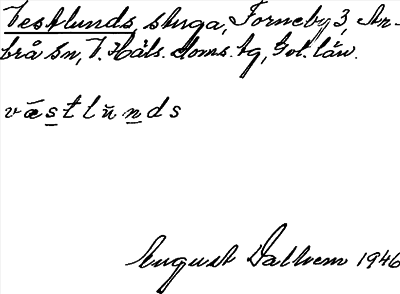 Vestlunds, stuga, Torneby 3, An-
brå sn, V. Häls. doms. bg, Gvl. län.
væstlŭnds
August Dallrem 1946